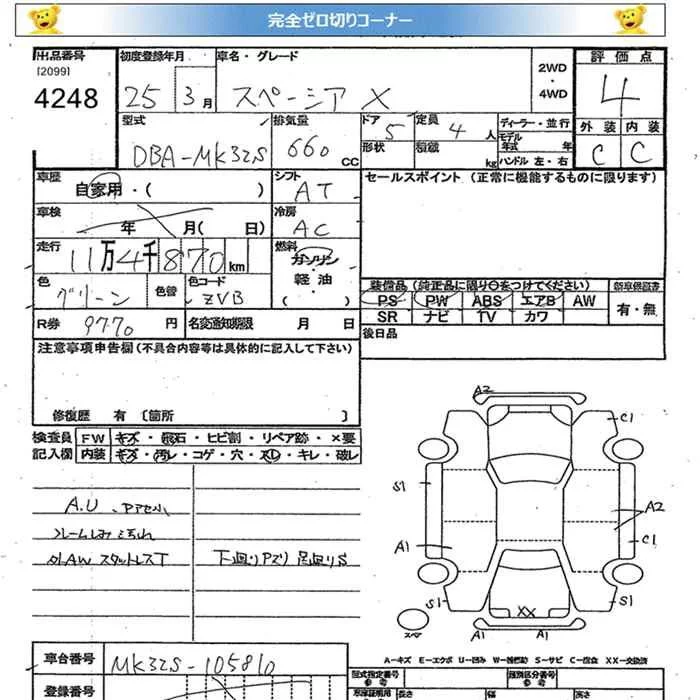 完全ゼロ切りコーナー
出品番号 初度登録年月 車名・グレード 評価点
[2099] 2WD
・
4248 25 3月 スペーシア X 4WD 4
型式 排気量 ドア 定員 ディーラー・並行 外装 内装
DBA-MK32S 660 CC 5 4 人 モデル 年式 年 C C
形状 積載 kg ハンドル 左・右
車歴 自家用・( ) シフト AT セールスポイント (正常に機能するものに限ります)
車検 年 月( 日) 冷房 AC
走行 11万4千870km 燃料 ガソリン・軽油・( )
色 グリーン 色替 色コード ZVB 装備品 (純正品に限り○をつけてください) 新車保証書
PS PW ABS エアB AW 有・無
R券 9770 円 名変通知期限 月 日 SR ナビ TV カワ
注意事項申告欄(不具合内容等は具体的に記入して下さい) 後日品
修復歴 有 〔箇所 〕
検査員 FW キズ・飛石・ヒビ割・リペア跡・×要
記入欄 内装 キズ・汚レ・コゲ・穴・スレ・キレ・破レ
A2
C1
S1
A2
A1 C1
S1 XX S1
A1 A1
A.U
外AW スタットレスT 下廻り 足廻りS
A-キズ E-エクボ U-凹み W-補修跡 S-サビ C-腐食 XX-交換済
車台番号 MK32S-105810
型式指定番号 類別区分番号
参考 参考
登録番号 長さ 幅 高さ